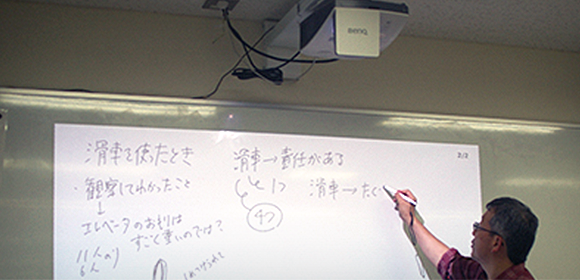 BenQ
2/2
滑車を使ったとき
・観察してわかったこと
↓
エレベータのおもりは
すごく重いのでは?
11人のり
6人
滑車→責任がある
1つ
4つ
滑車→たく
しめつけられて